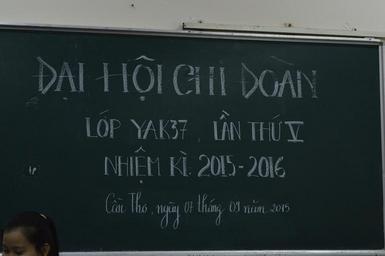 ĐẠI HỘI CHI ĐOÀN
LỚP YAK37, LẦN THỨ V
NHIỆM KÌ. 2015-2016
Cần Thơ, ngày 07 tháng 09 năm 2015